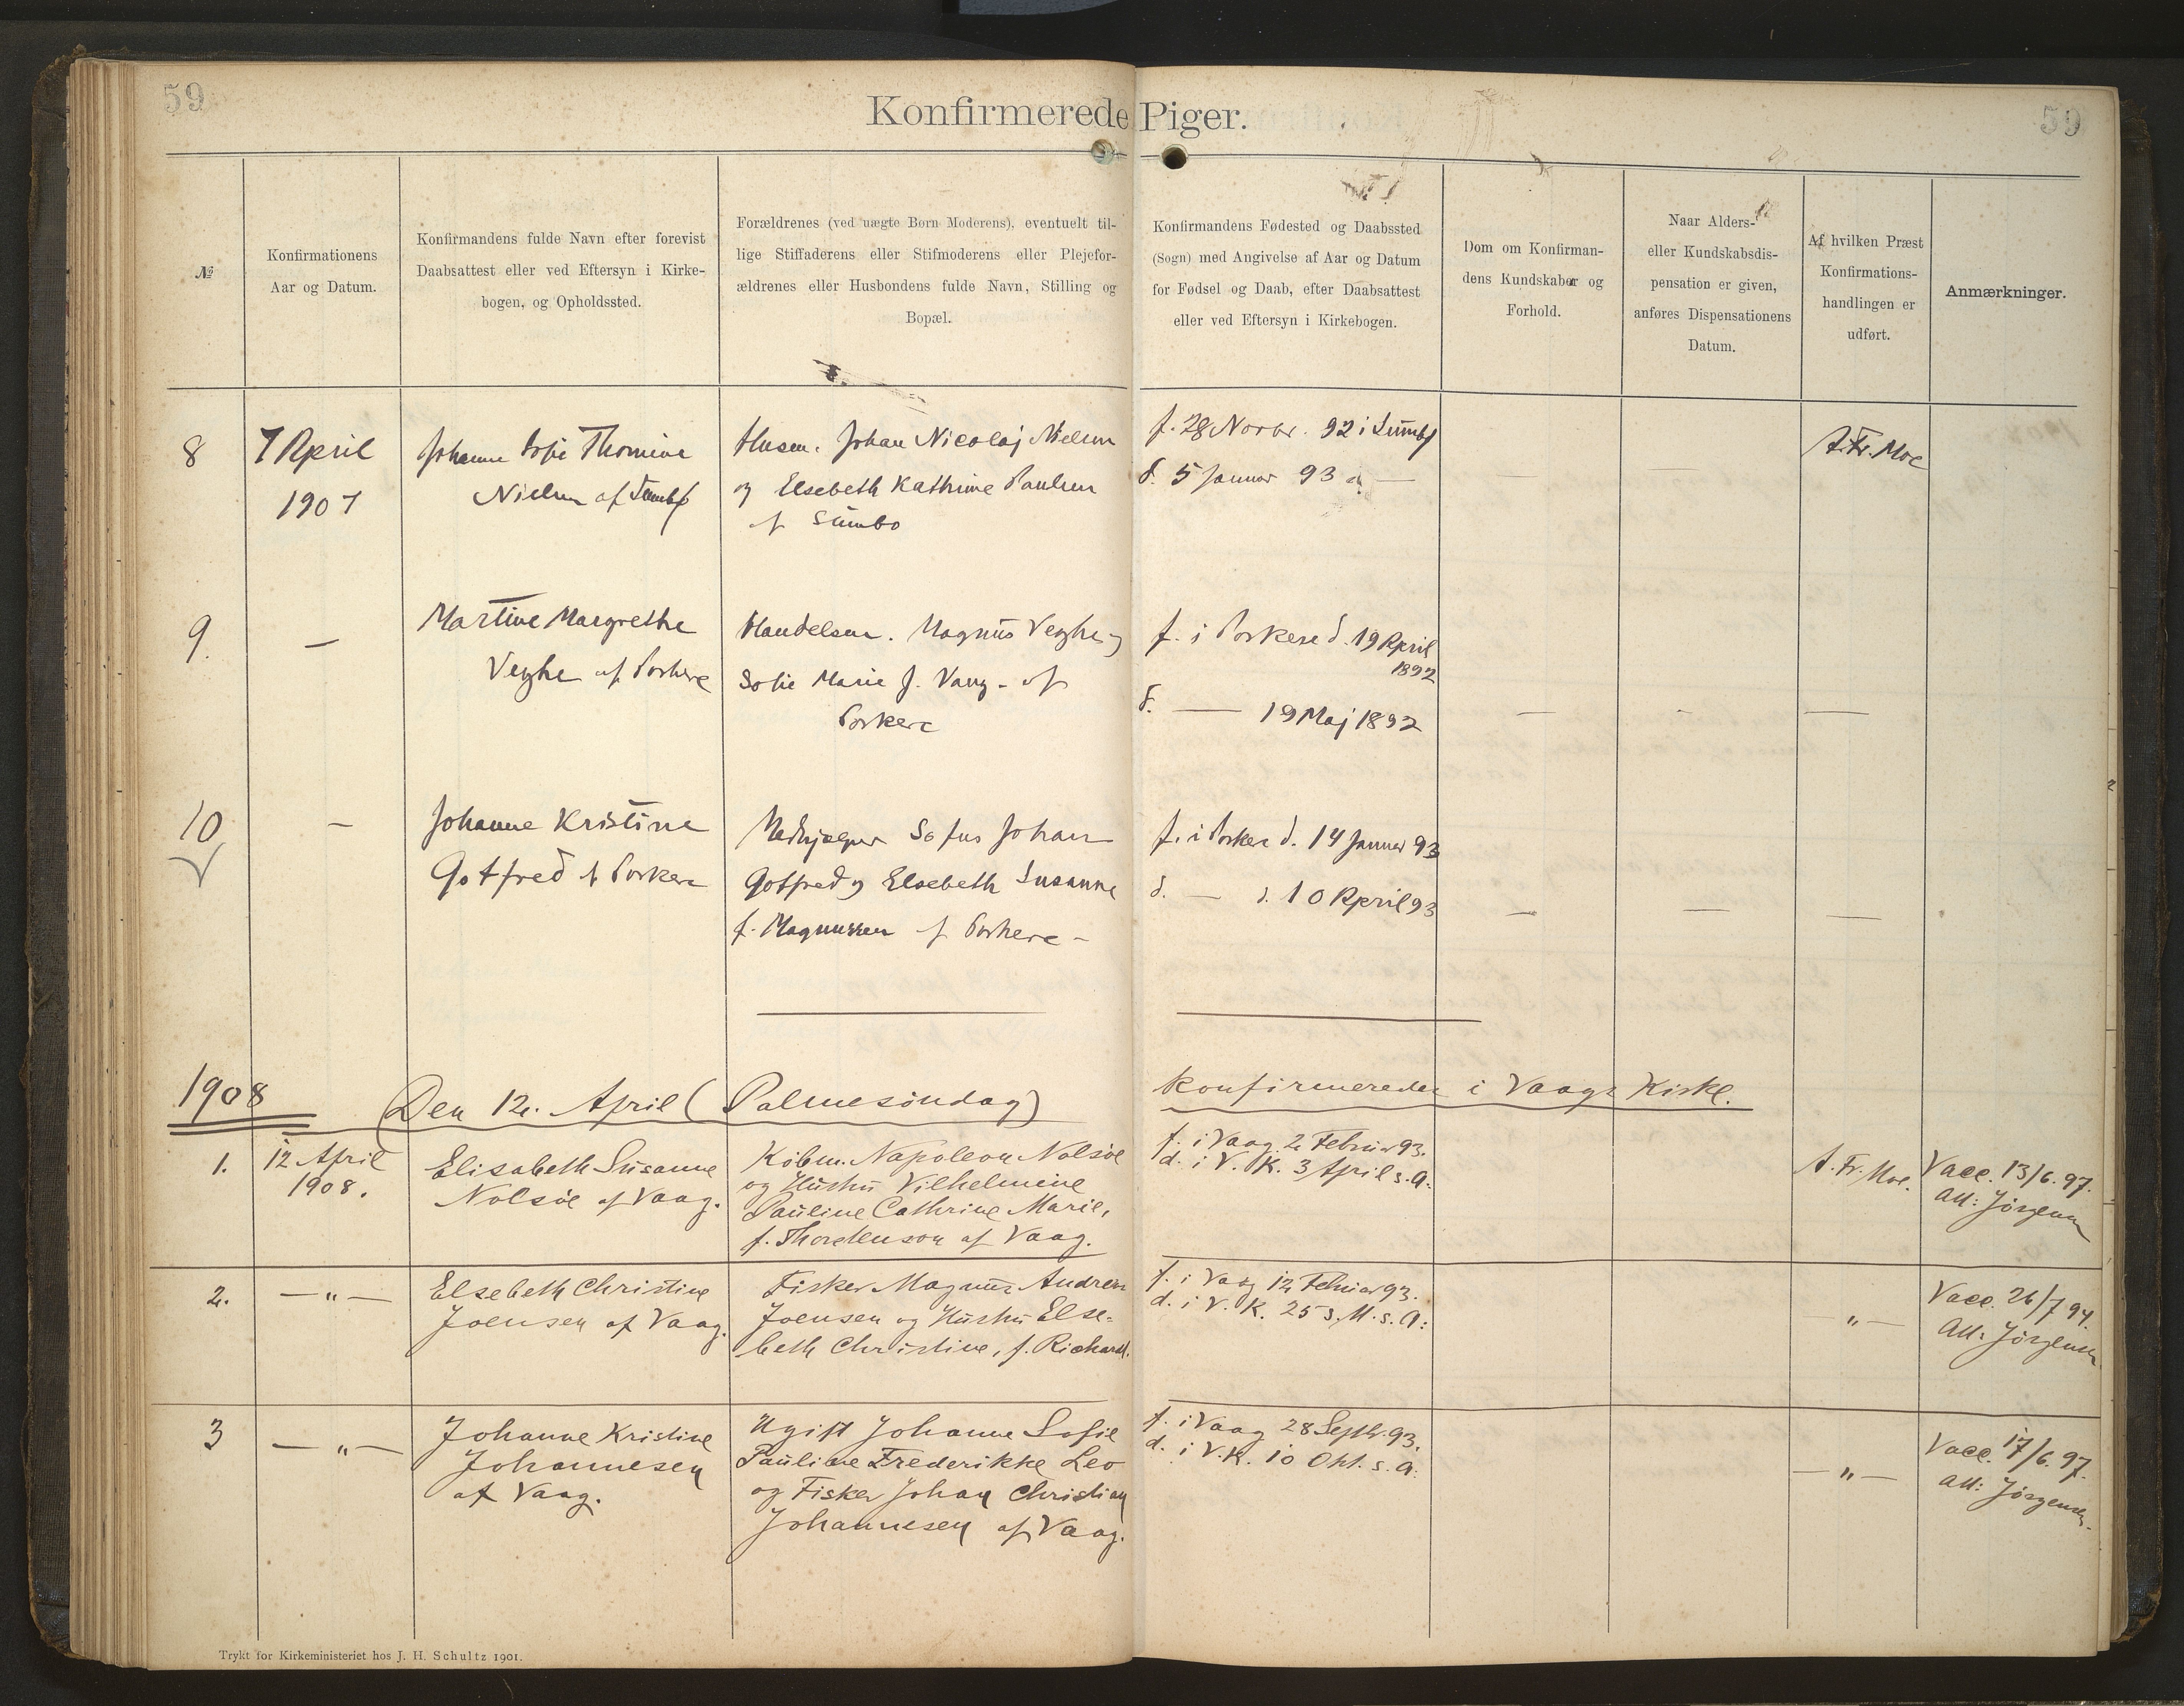 59
Konfirmerede Piger.
59
№
Konfirmationens
Aar og Datum.
Konfirmandens fulde Navn efter forevist
Daabsattest eller ved Eftersyn i Kirke-
bogen, og Opholdssted.
Forældrenes (ved uægte Børn Moderens), eventuelt til-
lige Stiffaderens eller Stifmoderens eller Plejefor-
ældrenes eller Husbondens fulde Navn, Stilling og
Bopæl.
Konfirmandens Fødested og Daabssted
(Sogn) med Angivelse af Aar og Datum
for Fødsel og Daab, efter Daabsattest
eller ved Eftersyn i Kirkebogen.
Dom om Konfirman-
dens Kundskaber og
Forhold.
Naar Alders-
eller Kundskabsdis-
pensation er given,
anføres Dispensationens
Datum.
Af hvilken Præst
Konfirmations-
handlingen er
udført.
Anmærkninger.
8
7 April
1907
Johanne Sofie Thomine
Nielsen af Sumbø
Husm. Johan Nicolaj Nielsen
og Elsebeth Kathrine Poulsen
af Sumbo
f. 28 Novbr. 92 i Sumbø
d. 5 Januar 93 -
—
—
A. Fr. Moe
9.
—
Martine Margrethe
Veyhe af Porkere
Handelsm. Magnus Veyhe og
Sofie Marie f. Vang - af
Porkere
f. i Porkere d. 19 April
1892
d. — 19 Maj 1892
—
-
—
10
—
Johanne Kristine
Gotfred af Porkere
Medhjælper Sofus Johan
Gotfred og Elsebeth Susanne
f. Magnussen af Porkere -
f. i Porkere d. 14 Januar 93
d. — d. 10 April 93
—
—
—
1908
Den 12. April (Palmesöndag)
Konfirmereder i Vaags Kirke.
1.
12 April
1908.
Elisabeth Susanne
Nolsöe af Vaag.
Købm. Napoleon Nolsöe
og Hustru Vilhelmine
Pauline Cathrine Marie,
f. Thordenson af Vaag.
f. i Vaag 2 Februar 93.
d. i V. K. 3 April s. A.
A. Fr. Moe.
Vacc. 13/6. 97.
Att: Jörgensen
2.
— " —
Elsebeth Christine
Joensen af Vaag.
Fisker Magnus Andreas
Joensen og Hustru Else-
beth Christine, f. Richard.
f. i Vaag 12 Februar 93.
d. i V. K. 25 s. M. s. A:
— " —
Vacc. 26/7 94.
Att: Jörgensen
3
— " —
Johanne Kristine
Johannesen
af Vaag.
Ugift Johanne Sofie
Pauline Frederikke Leo
og Fisker Johan Christian
Johannesen af Vaag.
f. i Vaag 28 Septbr. 93.
d. i V. K. 10 Okt. s. A.
— " —
Vacc. 17/6. 97.
Att: Jörgensen.
Trykt for Kirkeministeriet hos J. H. Schultz 1901.